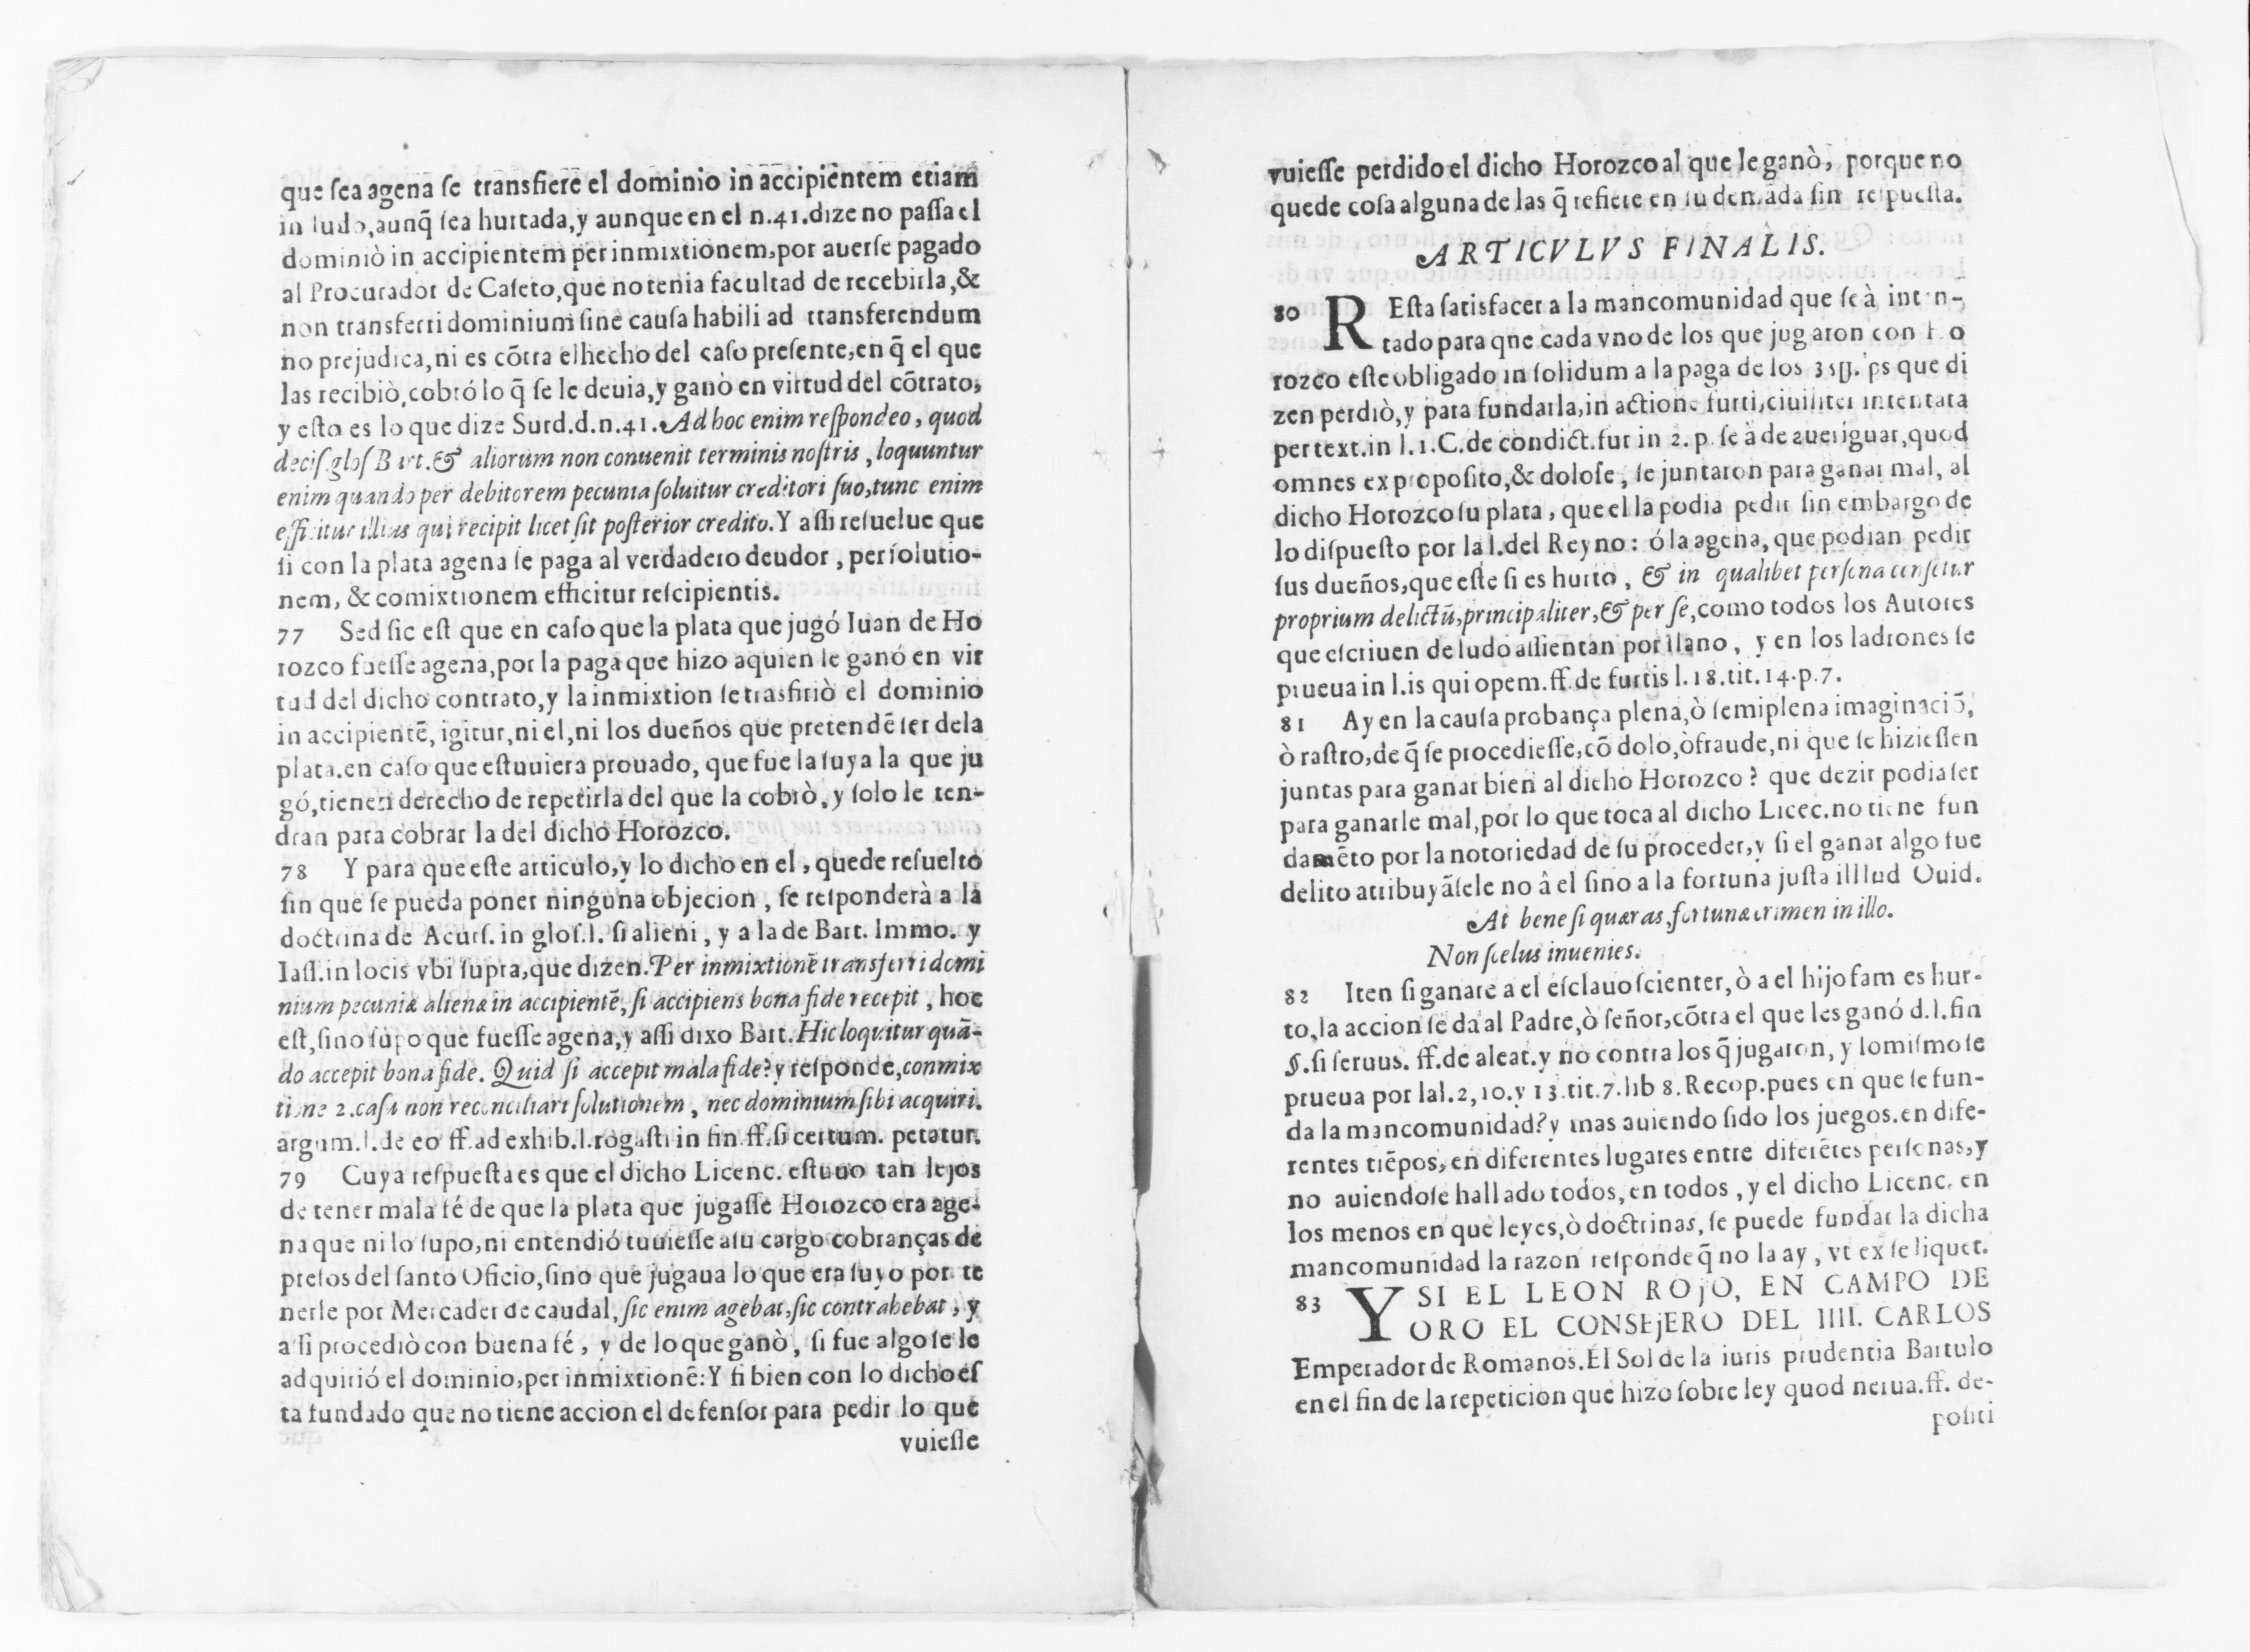 que sea agena se transfiere el dominio in accipièntem etiam
in ludo, aunq̃ sea hurtada, y aunque en el n.41. dize no passa el
dominiò in accipientem per inmixtionem, por auerse pagado
al Procurador de Caseto, que no tenia facultad de recebirla, &
non transferri dominium sine causa habili ad transferendum
no prejudica, ni es cõtra el hecho del caso presente, en q̃ el que
las recibiò, cobró lo q̃ se le deuia, y ganò en virtud del cõtrato,
y esto es lo que dize Surd.d.n.41. Ad hoc enim respondeo, quod
decis. glos Bart. & aliorum non conuenit terminis nostris, loquuntur
enim quando per debitorem pecunia soluitur creditori suo, tunc enim
efficitur illius qui recipit licet sit posterior credito. Y assi resuelue que
si con la plata agena se paga al verdadero deudor, per solutio-
nem, & comixtionem efficitur rescipientis.
77 Sed sic est que en caso que la plata que jugó Iuan de Ho
rozco fuesse agena, por la paga que hizo aquien le ganó en vir
tud del dicho contrato, y la inmixtion se trasfiriò el dominio
in accipientẽ, igitur, ni el, ni los dueños que pretendẽ ser dela
plata. en caso que estuuiera prouado, que fue la suya la que ju
gó, tienen derecho de repetirla del que la cobrò, y solo le ten-
dran para cobrar la del dicho Horozco.
78 Y para que este articulo, y lo dicho en el, quede resuelto
sin que se pueda poner ninguna objecion, se responderà a la
doctrina de Acurs. in glos. l. si alieni, y a la de Bart. Immo. y
Iass. in locis vbi supra, que dizen. Per inmixtionẽ transferri domi
nium pecuniæ alienæ in accipientẽ, si accipiens bona fide recepit, hoc
est, sino supo que fuesse agena, y assi dixo Bart. Hic loquitur quã-
do accepit bona fide. Quid si accepit mala fide? y responde, conmix
tione 2. casu non reconciliari solutionem, nec dominium sibi acquiri.
argum. l. de eo ff. ad exhib. l. rogasti in fin. ff. si certum. petatur.
79 Cuya respuesta es que el dicho Licenc. estuuo tan lejos
de tener mala fé de que la plata que jugasse Horozco era age-
na que ni lo supo, ni entendió tuuiesse asu cargo cobranças de
presos del santo Oficio, sino que jugaua lo que era suyo por te
nerle por Mercader de caudal, sic enim agebat, sic contrahebat, y
assi procediò con buena fé, y de lo que ganò, si fue algo se le
adquirió el dominio, per inmixtionẽ: Y si bien con lo dicho es
ta fundado que no tiene accion el defensor para pedir lo que
vuiesse
vuiesse perdido el dicho Horozco al que le ganò, porque no
quede cosa alguna de las q̃ refiere en su demãda sin respuesta.
ARTICVLVS FINALIS.
80 REsta satisfacer a la mancomunidad que se à inten-
tado para qne cada vno de los que jugaron con Ho
rozco este obligado in solidum a la paga de los ps que di
zen perdiò, y para fundarla, in actione furti, ciuiliter intentata
per text. in l. 1. C. de condict. fur in 2. p. se à de aueriguar, quod
omnes ex proposito, & dolose, se juntaron para ganar mal, al
dicho Horozco su plata, que el la podia pedir sin embargo de
lo dispuesto por la l. del Reyno: ó la agena, que podian pedir
sus dueños, que este si es hurto, & in qualibet persena censetur
proprium delictũ, principaliter, & per se, como todos los Autores
que escriuen de ludo assientan por llano, y en los ladrones se
prueua in l. is qui opem. ff. de furtis l. 18. tit. 14. p. 7.
81 Ay en la causa probança plena, ò semiplena imaginaciõ,
ò rastro, de q̃ se procediesse, cõ dolo, ò fraude, ni que se hiziessen
juntas para ganar bien al dicho Horozco? que dezir podia ser
para ganarle mal, por lo que toca al dicho Licec. no tiene fun
damẽto por la notoriedad de su proceder, y si el ganar algo fue
delito atribuyãsele no â el sino a la fortuna justa illlud Ouid.
At bene si quæras, fortunæ crimen in illo.
Non scelus inuenies.
82 Iten si ganare a el esclauo scienter, ò a el hijo fam es hur-
to, la accion se da al Padre, ò señor, cõtra el que les ganó d. l. fin
§. si seruus. ff. de aleat. y no contra los q̃ jugaron, y lo mismo se
prueua por la l. 2, 10. y 13. tit. 7. lib 8. Recop. pues en que se fun-
da la mancomunidad? y mas auiendo sido los juegos. en dife-
rentes tiẽpos, en diferentes lugares entre diferẽtes personas, y
no auiendose hallado todos, en todos, y el dicho Licenc. en
los menos en que leyes, ò doctrinas, se puede fundar la dicha
mancomunidad la razon responde q̃ no la ay, vt ex se liquet.
83 Y SI EL LEON ROjO, EN CAMPO DE
ORO EL CONSEjERO DEL IIII. CARLOS
Emperador de Romanos. El Sol de la iuris prudentia Bartulo
en el fin de la repeticion que hizo sobre ley quod nerua. ff. de-
positi